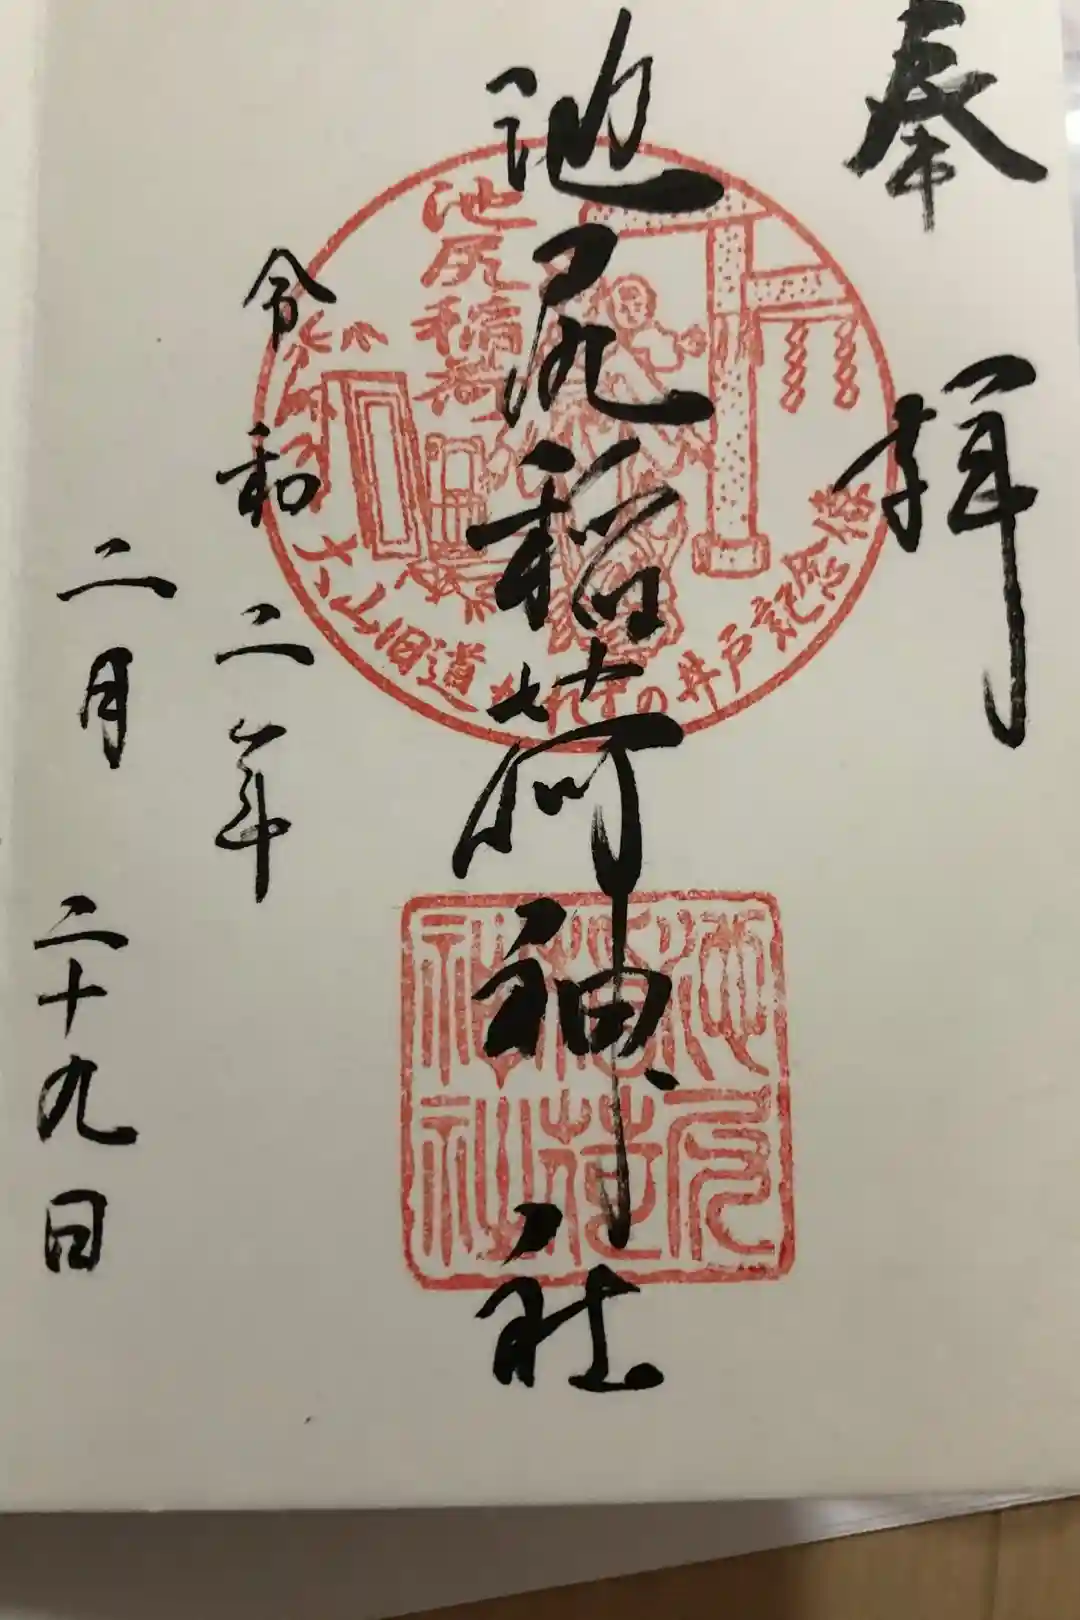 奉拝
池尻稲荷神社
令和二年
二月二十九日
池尻稲荷
大山旧道かれずの井戸記念像
池尻稲荷神社